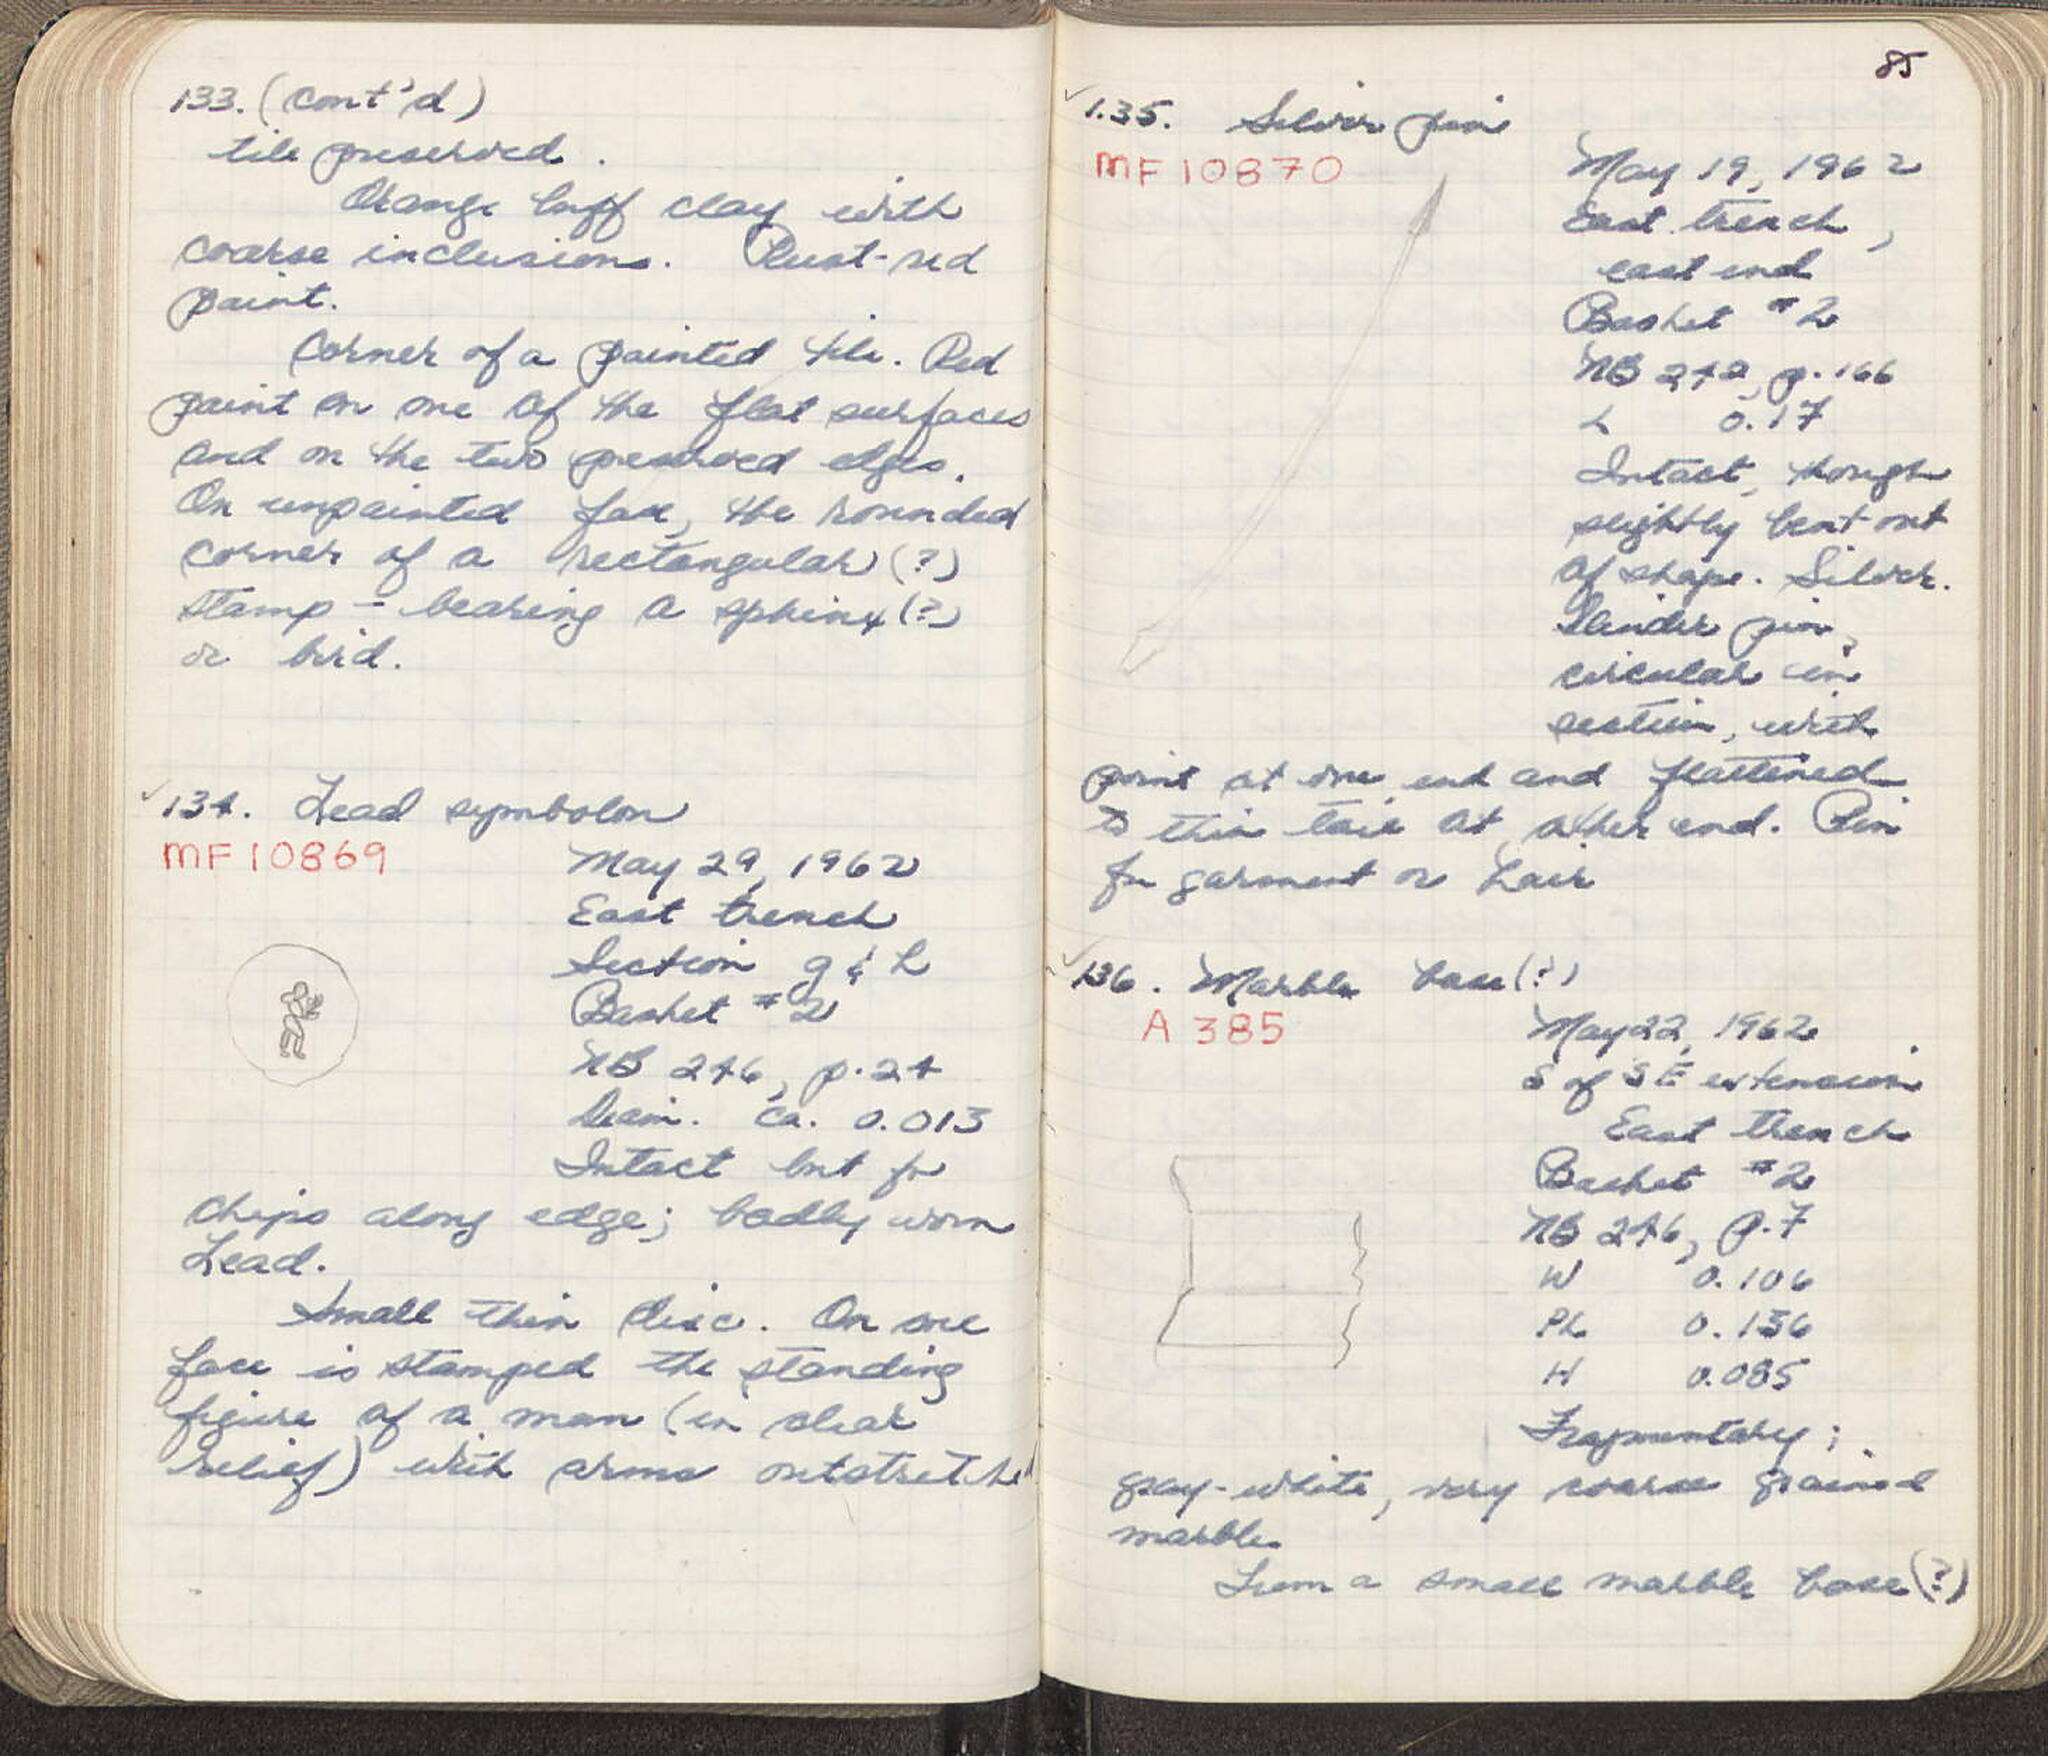 133. (cont'd)
tile preserved.
Orange buff clay with
coarse inclusions. Rust-red
paint.
Corner of a painted tile. Red
paint on one of the flat surfaces
and on the two preserved edges.
On unpainted face, the rounded
corner of a rectangular (?)
stamp - bearing a sphinx (?)
or bird.
134. Lead symbolon
MF 10869
May 29, 1962
East trench
Section g & h
Basket #2
NB 246, p. 24
Diam. ca. 0.013
Intact but for
chips along edge; badly worn
Lead.
Small thin disc. On one
face is stamped the standing
figure of a man (in clear
relief) with arms outstretched
85
135. Silver pin
MF 10870
May 19, 1962
East trench,
east end
Basket #2
NB 242, p. 166
L 0.17
Intact, though
slightly bent out
of shape. Silver.
Slender pin,
circular in
section, with
point at one end and flattened
to thin at other end. Pin
for garment or hair
136. Marble base (?)
A 385
May 22, 1962
S of SE extension
East trench
Basket #2
NB 246, p. 7
W 0.106
PL 0.136
H 0.085
Fragmentary;
gray-white, very coarse grained
marble
From a small marble base (?)